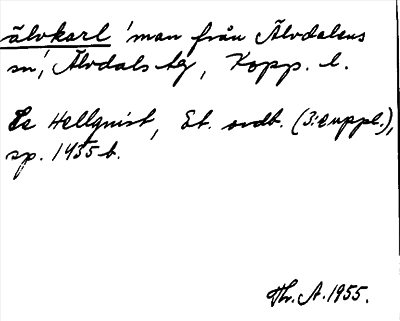 älvkarl 'man från Älvdalens
sn', Älvdals tg, Kopp. l.
Se Hellquist, Et. ordb. (3:e uppl.),
sp. 1435 b.
Th. A. 1955.